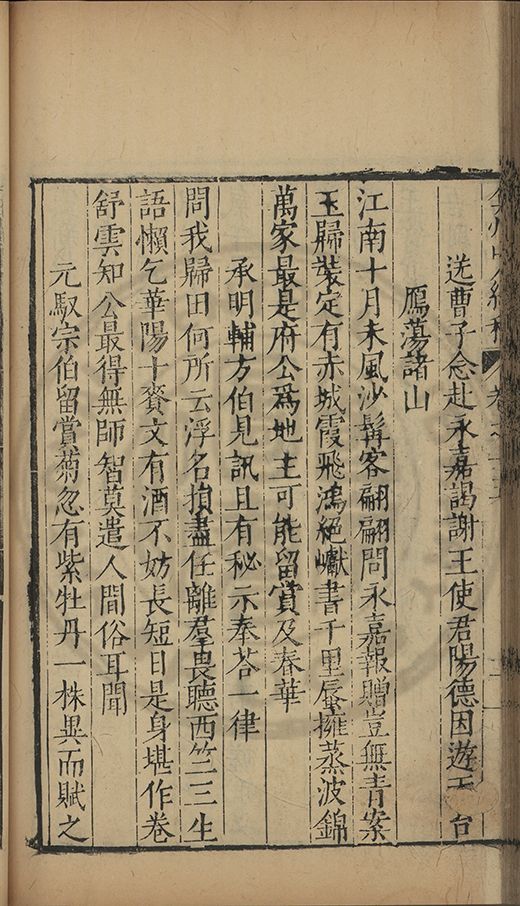 送曹子念赴永嘉謁謝王使君陽德因遊天台
鴈蕩諸山
江南十月未風沙髯客翩翩問永嘉報贈豈無青案
玉歸裝定有赤城霞飛鴻絕巘書千里蜃擁蒸波錦
萬家最是府公爲地主可能留賞及春華
承明輔方伯見訊且有秘示奉荅一律
問我歸田何所云浮名損盡任離羣畏聽西竺三生
語懶乞華陽十賚文有酒不妨長短日是身堪作卷
舒雲知公最得無師智莫遣人間俗耳聞
元馭宗伯留賞菊忽有紫牡丹一株異而賦之